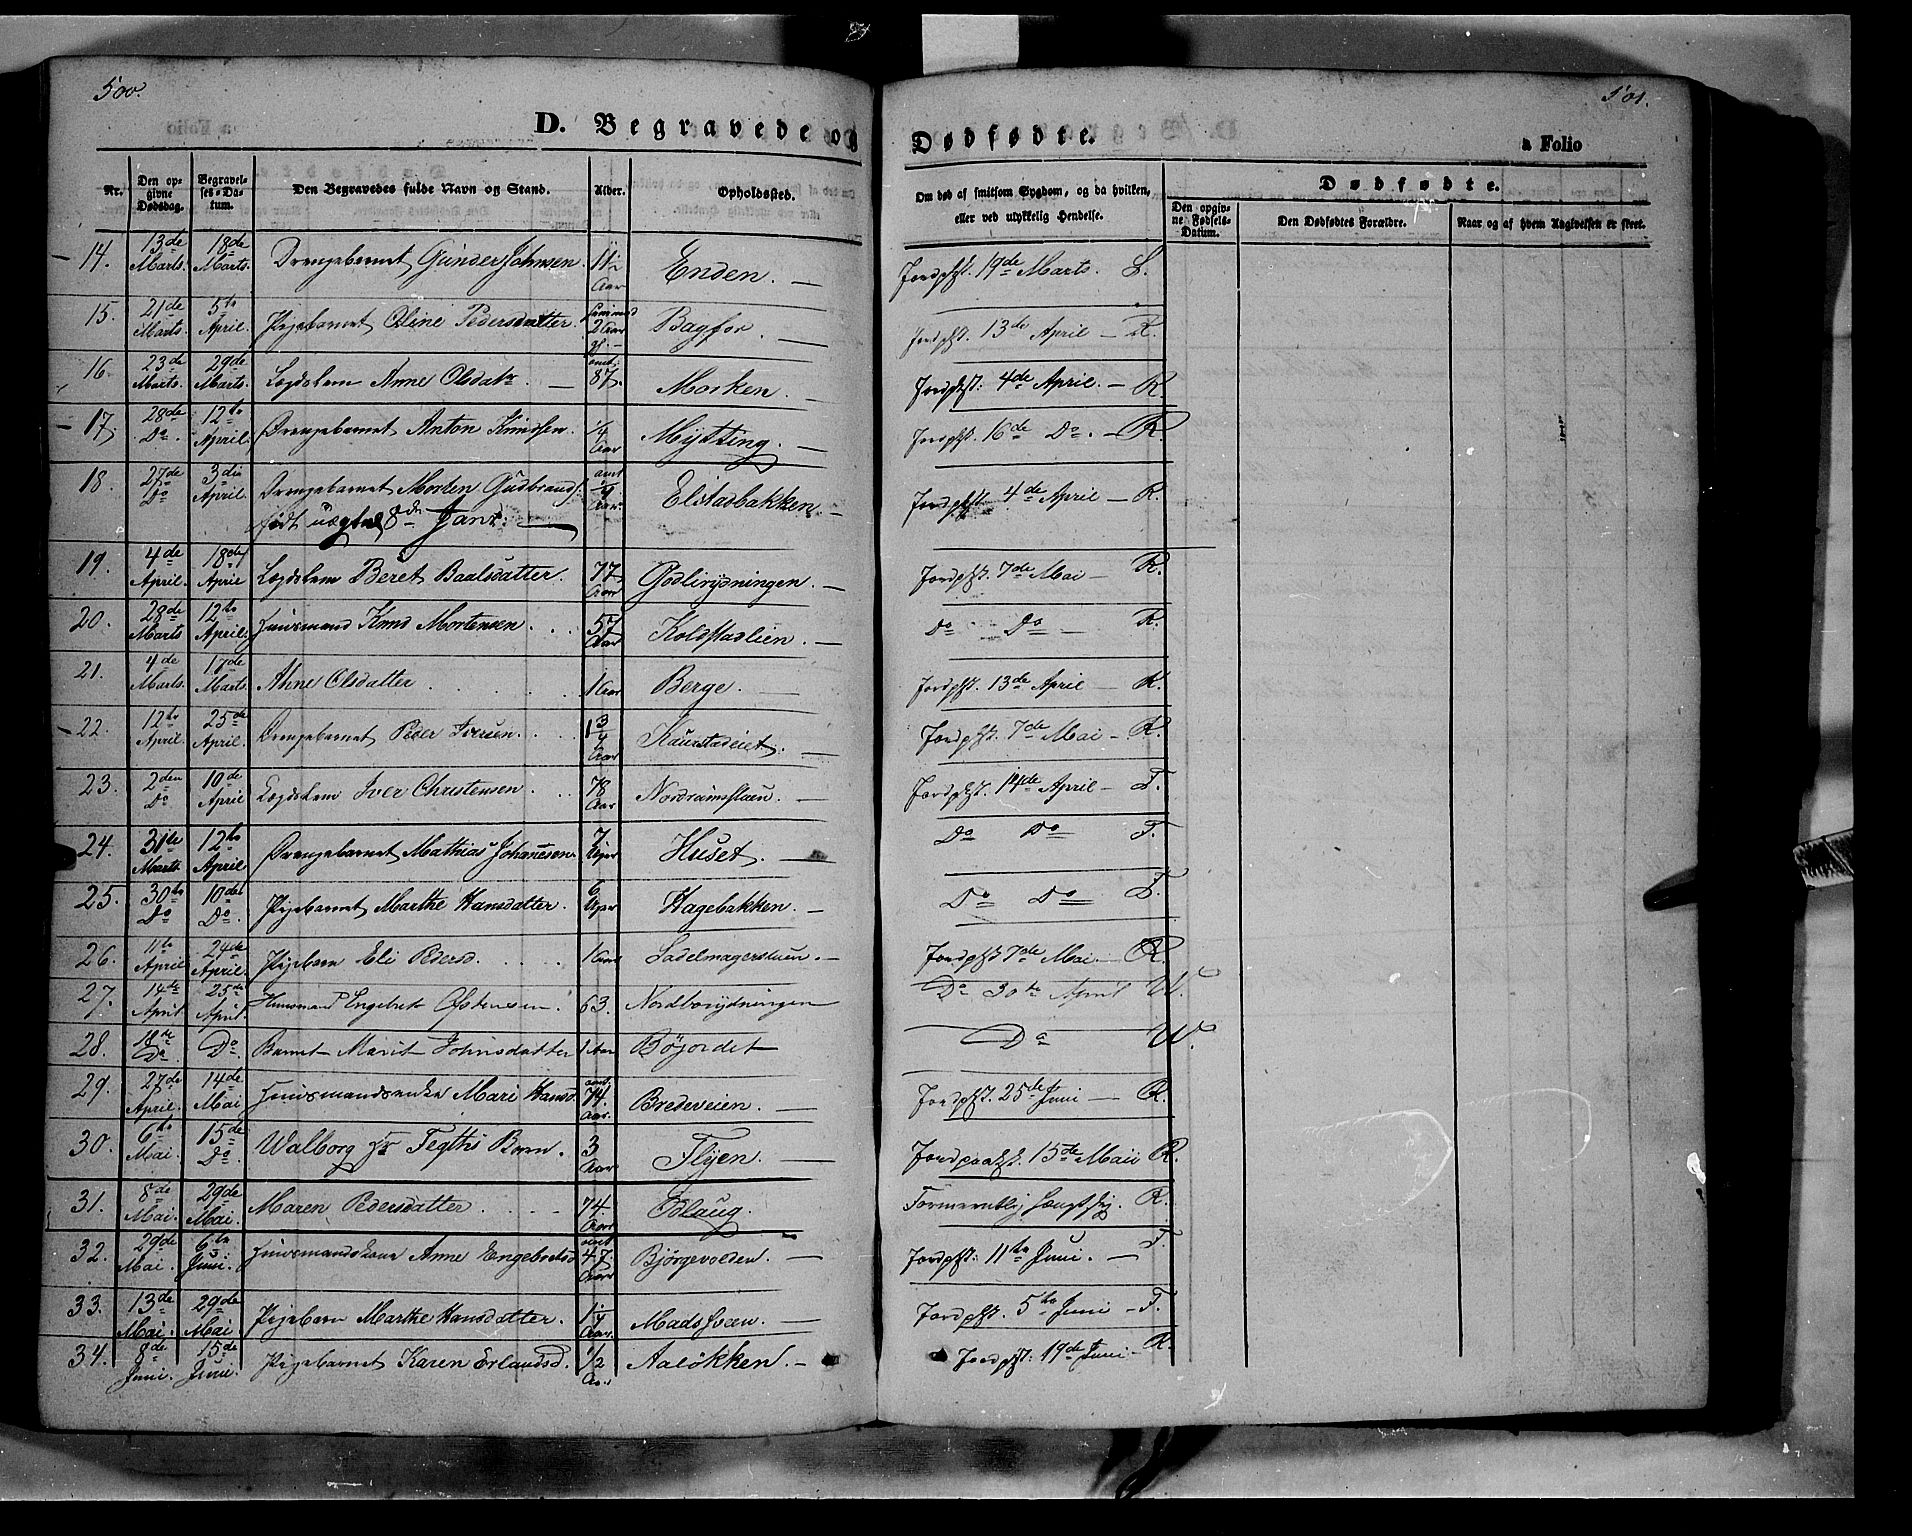 500.
501.
D. Begravede og
Dødfødte.
a Folio
Nr.
Den opgivne Dødsdag.
Begravelses-Datum.
Den Begravedes fulde Navn og Stand.
Alder.
Opholdssted.
Om død af smitsom Sygdom, og da hvilken, eller ved ulykkelig Hendelse.
Dødfødte.
Den opgivne Fødsels-Datum.
Den Dødfødtes Forældre.
Naar og af hvem Angivelsen er skeet.
14. 13de Marts. 18de Marts. Drengebarnet Gunder Johnsen. 1½ Aar Enden. — Jordpkst. 19de Marts. L.
15. 21de Marts. 5te April. Pigebarnet Oline Pedersdatter. 2 Aar Bagfor. — Jordpkst. 13de April — R.
16. 23de Marts. 29de Marts. Lægdslem Anne Olsdatr. — 87. Morken. — Jordpkst. 4de April. — R.
17. 28de Do. 12te April. Drengebarnet Anton Knudsen. ¼ Aar Mytting. — Jordpkst. 16de Do. — R.
18. 27de Do 3die April. Drengebarnet Morten Gudbrands. ¼ Aar Elstadbakken. — Jordpkst. 4de April — R.
født uægte 8de Janr. —
19. 4de April. 18de April Lægdslem Beret Baalsdatter. 77 Aar Godlirydningen. — Jordpkst. 7de Mai — R.
20. 28de Marts 12te April. Huusmand Knud Mortensen . . . 57 Aar Koldstadlien. — Do Do — R.
21. 4de Marts. 17de Marts. Anne Olsdatter . . . . . 1 Aar Berge. — Jordpkst. 13de April — R.
22. 12te April. 25de April. Drengebarnet Peder Iversen. . . 1¾ Aar Kaurstadeiet. — Jordpkst. 7de Mai — R.
23. 2den Do 10de April Lægdslem Iver Christensen . . . 78 Aar Nordramsstuen. — Jordpkst. 14de April — F.
24. 31te Marts 12te April. Drengebarnet Mathias Johannesen. 7 Uger Huset. — Do Do F.
25. 30te Do 10de Do. Pigebarnet Marthe Hansdatter. 6 Uger Hagebakken. — Do Do F.
26. 11te April 24de April. Pigebarn Eli Pedersd. . . . . 1 Aar Sadelmagerstuen. — Jordpkst. 7de Mai. — R.
27. 14de April. 25de April. Huusmand Engebret Østensen. 63. Nordborydningen Do 30te April W.
28. 18de Do Do Barnet Marit Johnsdatter 1 Aar Bøjordet Do W.
29. 27de April. 14de Mai Huusmandsenke Mari Hansd. 74. Aar. Bredeveien. — Jordpkst. 25de Juni — R.
30. 6te Mai. 15de Do. Walborg Fegths Barn. 3 Aar Flyen. — Jordpaakst. 15de Mai R.
31. 8de Mai. 29de Mai. Maren Pedersdatter . . . . 74. Aar Odlaug. — R.
32. 29de Mai. 6te Juni. Huusmandskone Anne Engebretsd. 47. Aar Bjørgevolden. — Jordpkst. 11te Juni. — F.
33. 13de Mai. 29de Mai. Pigebarn Marthe Hansdatter. 1¼ Aar. Madshuen. — Jordpkst. 5te Juni — F.
34. 8de Juni. 15de Juni. Pigebarnet Karen Erlandsd. ½ Aar. Aaløkken. — Jordpkst. 19de Juni — R.